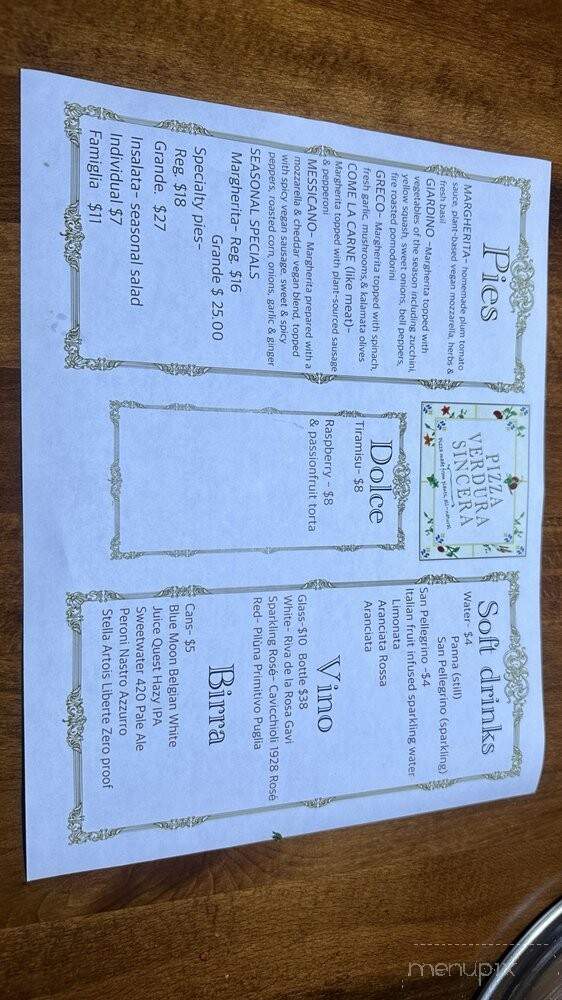 Pies
MARGHERITA- homemade plum tomato
sauce, plant-based vegan mozzarella, herbs &
fresh basil
GIARDINO -Margherita topped with
vegetables of the season including zucchini,
yellow squash, sweet onions, bell peppers,
fire roasted pomodorini
GRECO- Margherita topped with spinach,
fresh garlic, mushrooms,& kalamata olives
COME LA CARNE (like meat)-
Margherita topped with plant-sourced sausage
& pepperoni
MESSICANO- Margherita prepared with a
mozzarella & cheddar vegan blend, topped
with spicy vegan sausage, sweet & spicy
peppers, roasted corn, onions, garlic & ginger
SEASONAL SPECIALS
Margherita- Reg. $16
Grande $ 25.00
Specialty pies-
Reg. $18
Grande. $27
Insalata- seasonal salad
Individual $7
Famiglia $11
PIZZA
VERDURA
SINCERA
Dolce
Tiramisu- $8
Raspberry - $8
& passionfruit torta
Soft drinks
Water- $4
Panna (still)
San Pellegrino (sparkling)
San Pellegrino -$4
Italian fruit infused sparkling water
Limonata
Aranciata Rossa
Aranciata
Vino
Glass-$10 Bottle $38
White- Riva de la Rosa Gavi
Sparkling Rosé- Cavicchioli 1928 Rosé
Red- Piluna Primitivo Puglia
Birra
Cans- $5
Blue Moon Belgian White
Juice Quest Hazy IPA
Sweetwater 420 Pale Ale
Peroni Nastro Azzurro
Stella Artois Liberte Zero proof
menupix